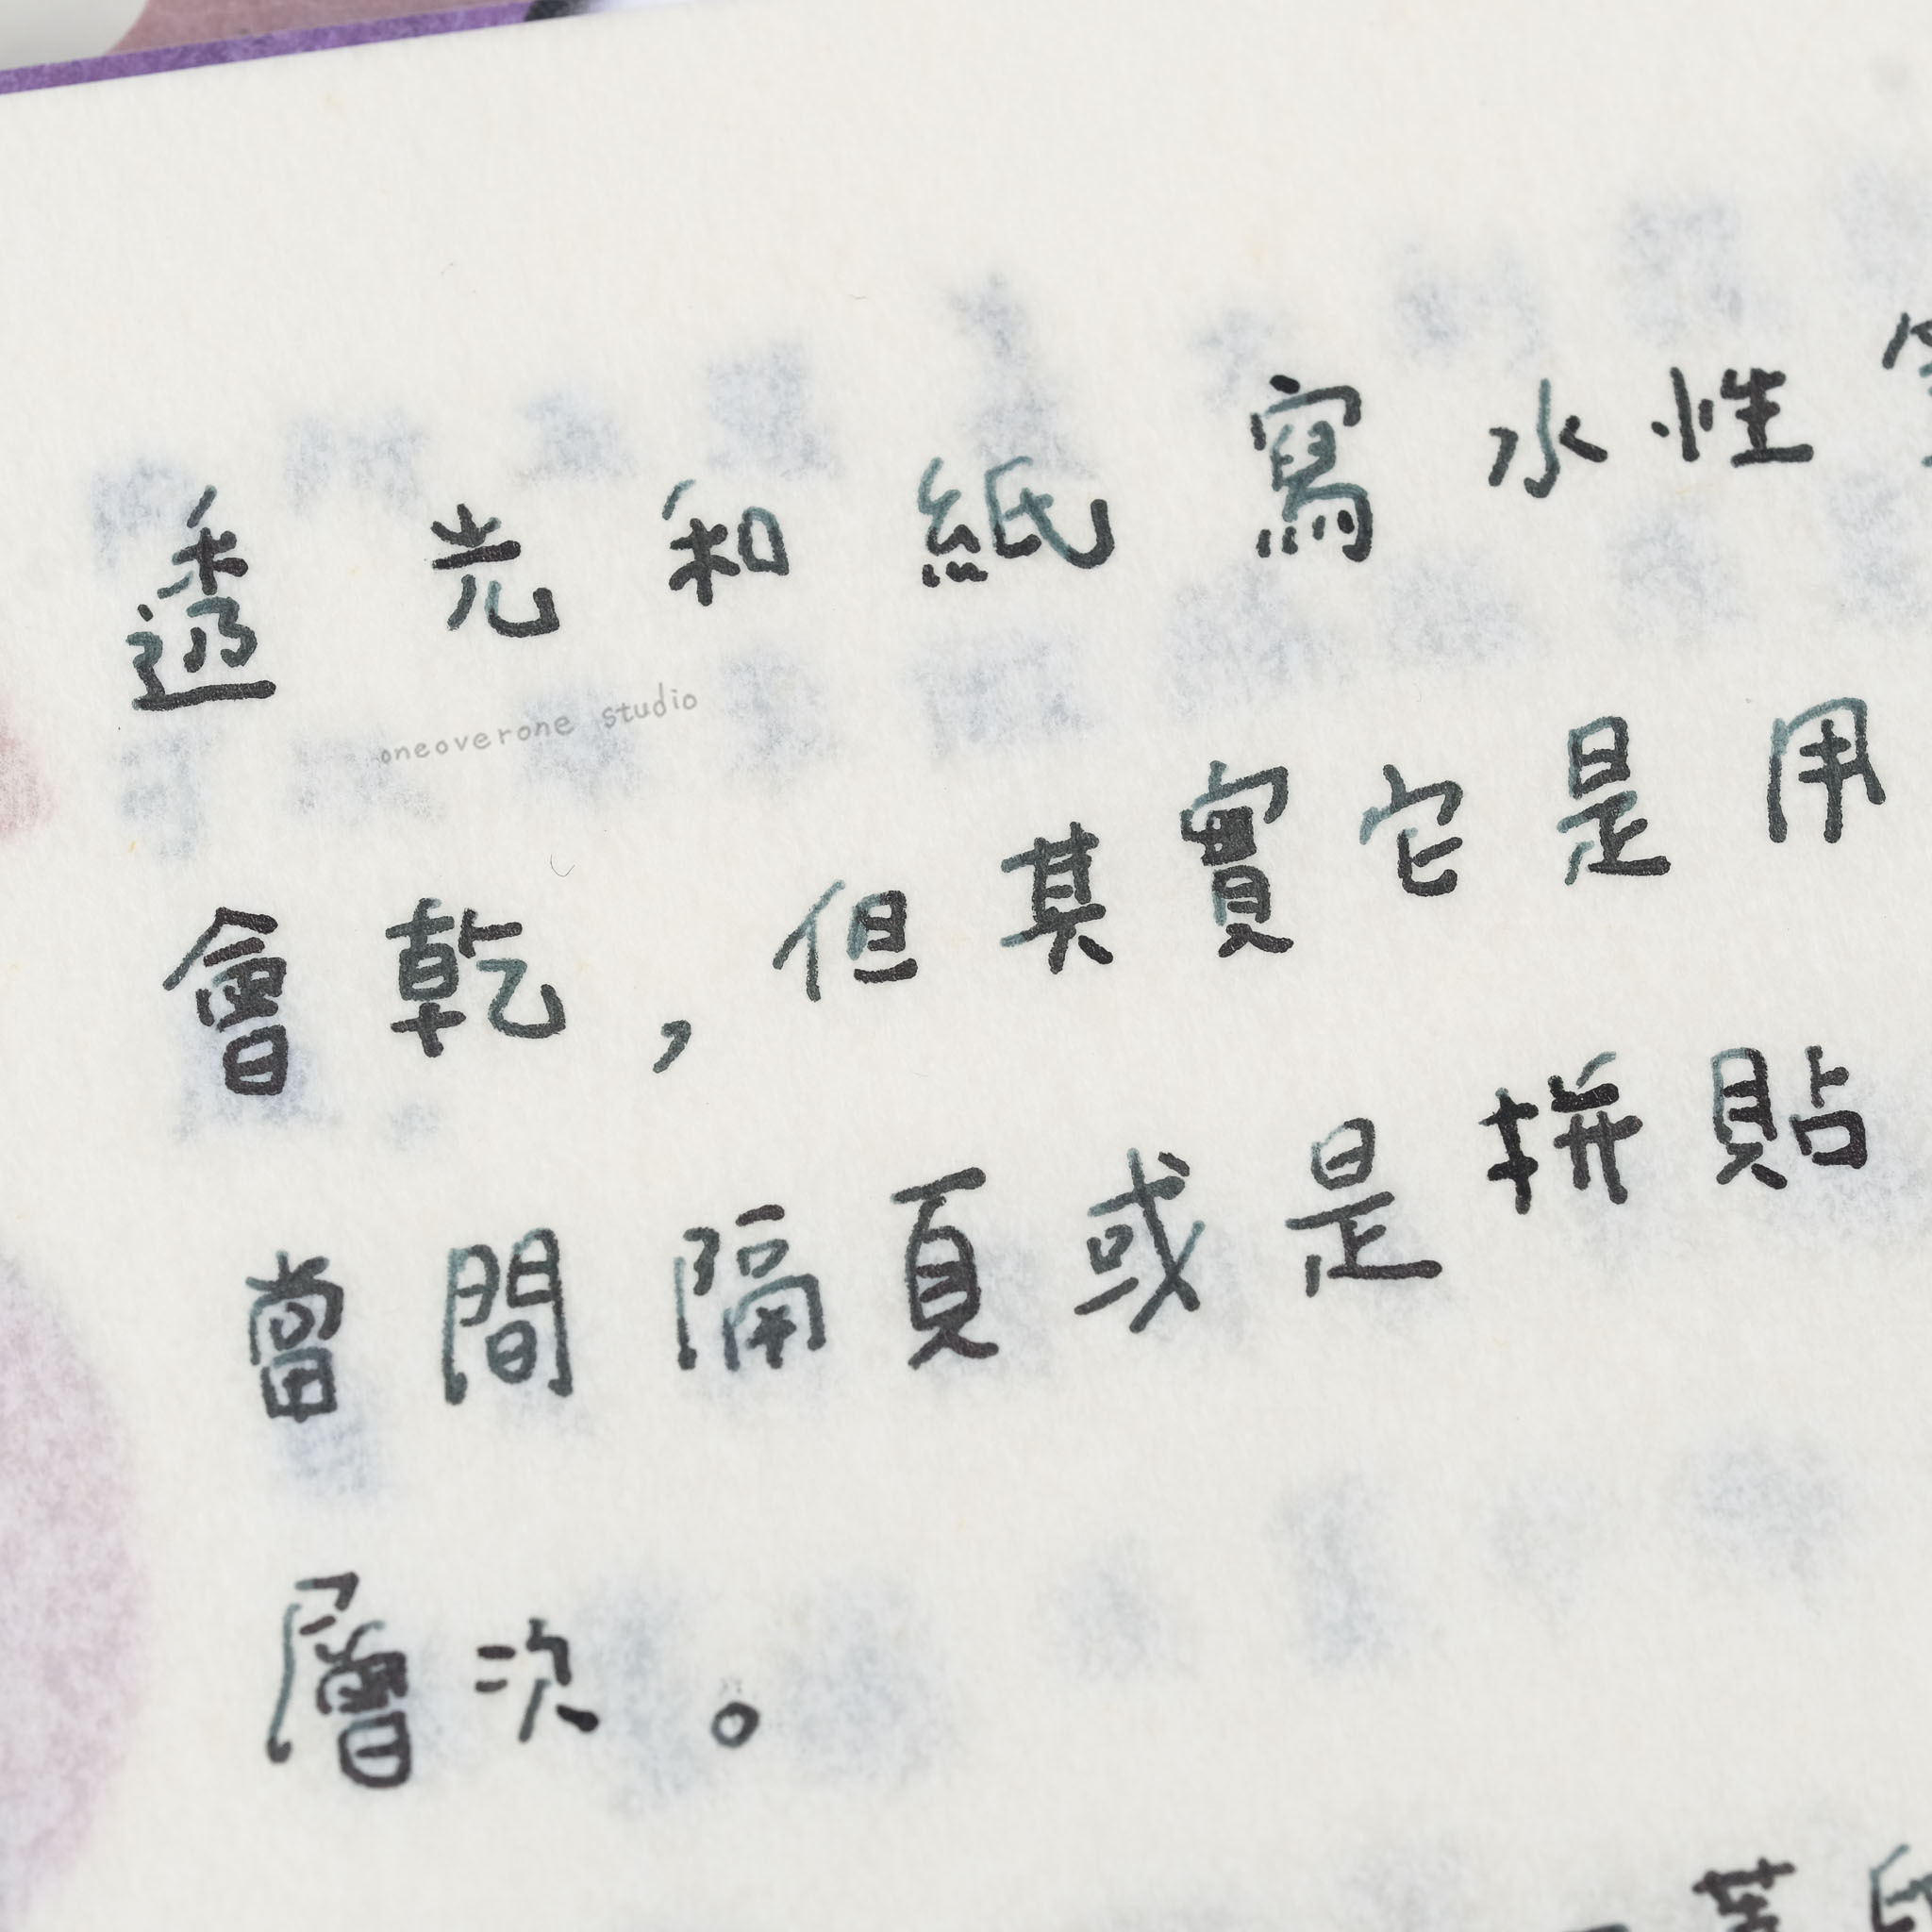 透光和紙寫水性
oneoverone studio
會乾，但其實它是用
當間隔頁或是拼貼
層次。